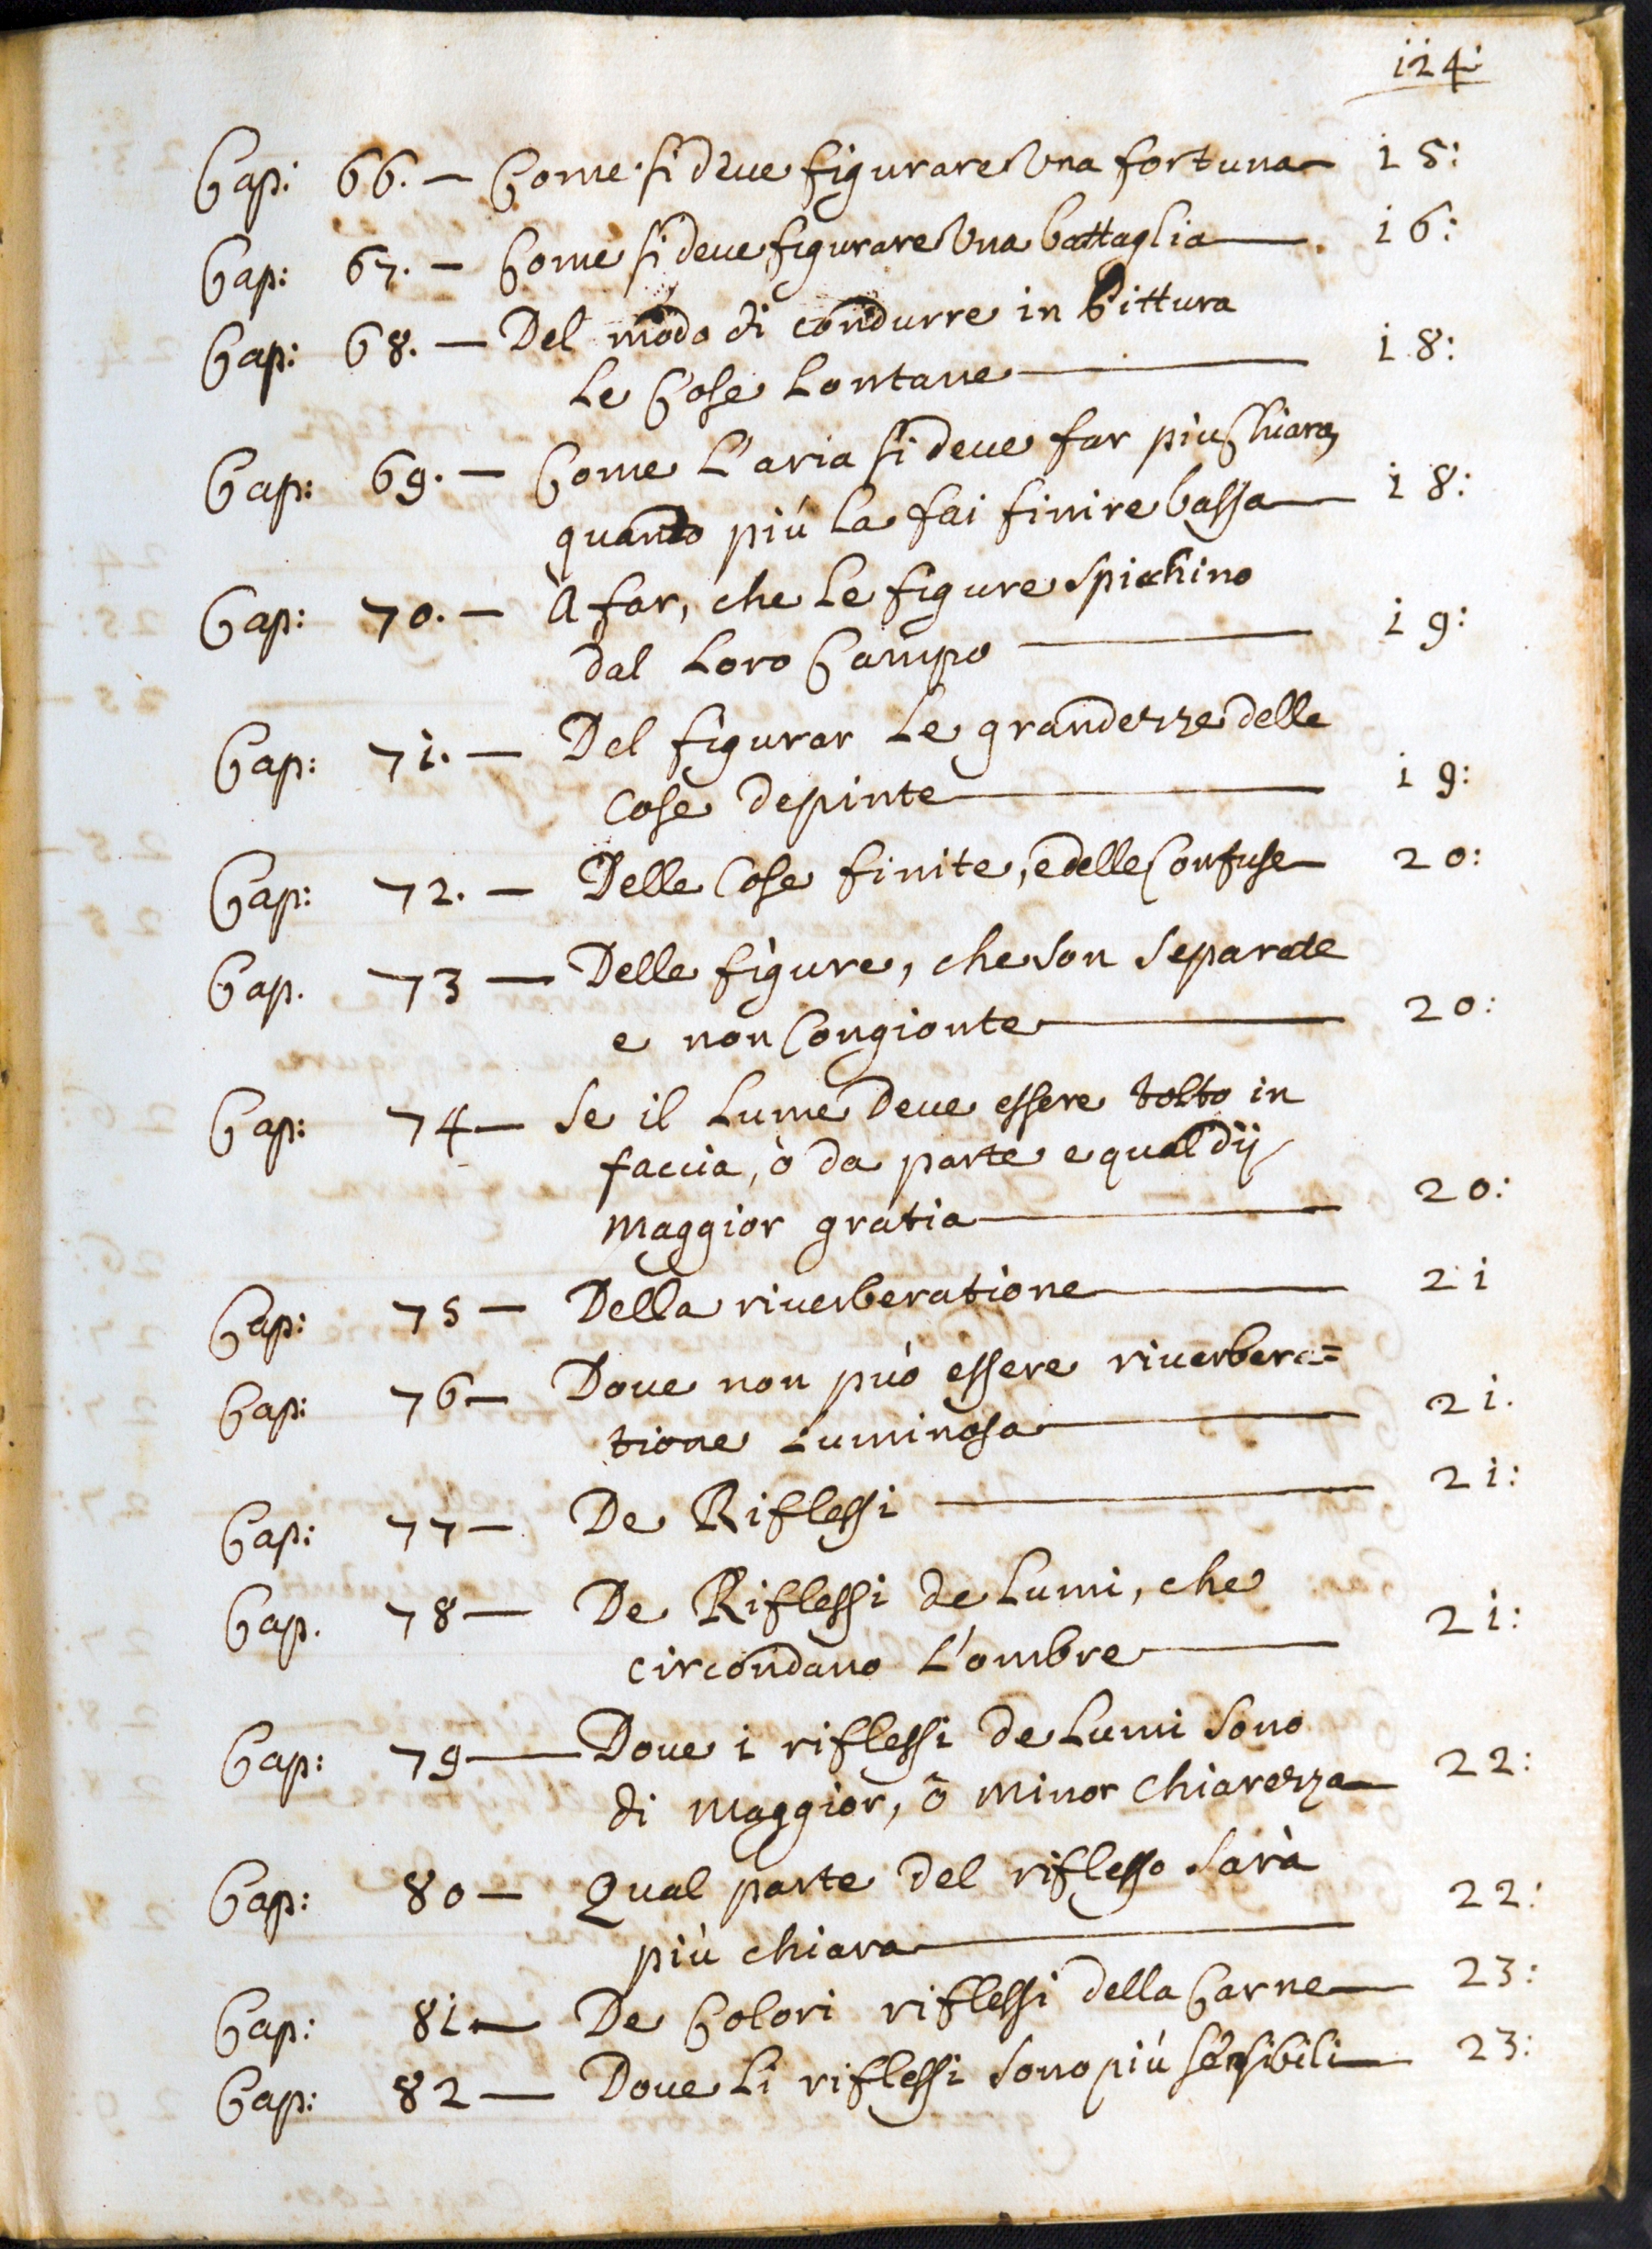 124:
Cap: 66. — Come si deue figurare Vna fortuna — 15:
Cap: 67. — Come si deue figurare Vna battaglia — 16:
Cap: 68. — Del modo di condurre in Pittura
Le Cose Lontane — 18:
Cap: 69. — Come L'aria si deue far più Chiara,
quanto più La fai finire bassa — 18:
Cap: 70. — A far, che Le figure spichino
dal Loro Campo — 19:
Cap: 71. — Del figurar Le grandezze delle
Cose depinte — 19:
Cap: 72. — Delle Cose finite, e delle Confuse — 20:
Cap. 73 — Delle figure, che son separate
e non Congionte — 20:
Cap: 74 — Se il Lume Deue essere tolto in
faccia, ò da parte e qual dij
maggior gratia — 20:
Cap: 75 — Della riuerberatione — 21
Cap: 76 — Doue non può essere riuerbera=
tione Luminosa — 21.
Cap: 77 — De Riflessi — 21:
Cap. 78 — De Riflessi de Lumi, che
circondano L'ombre — 21:
Cap: 79 — Doue i riflessi de Lumi sono
di maggior, ò minor chiarezza — 22:
Cap: 80 — Qual parte del riflesso sarà
più chiara — 22:
Cap: 81. — De Colori riflessi della Carne — 23:
Cap: 82 — Doue Li riflessi sono più sensibili — 23: